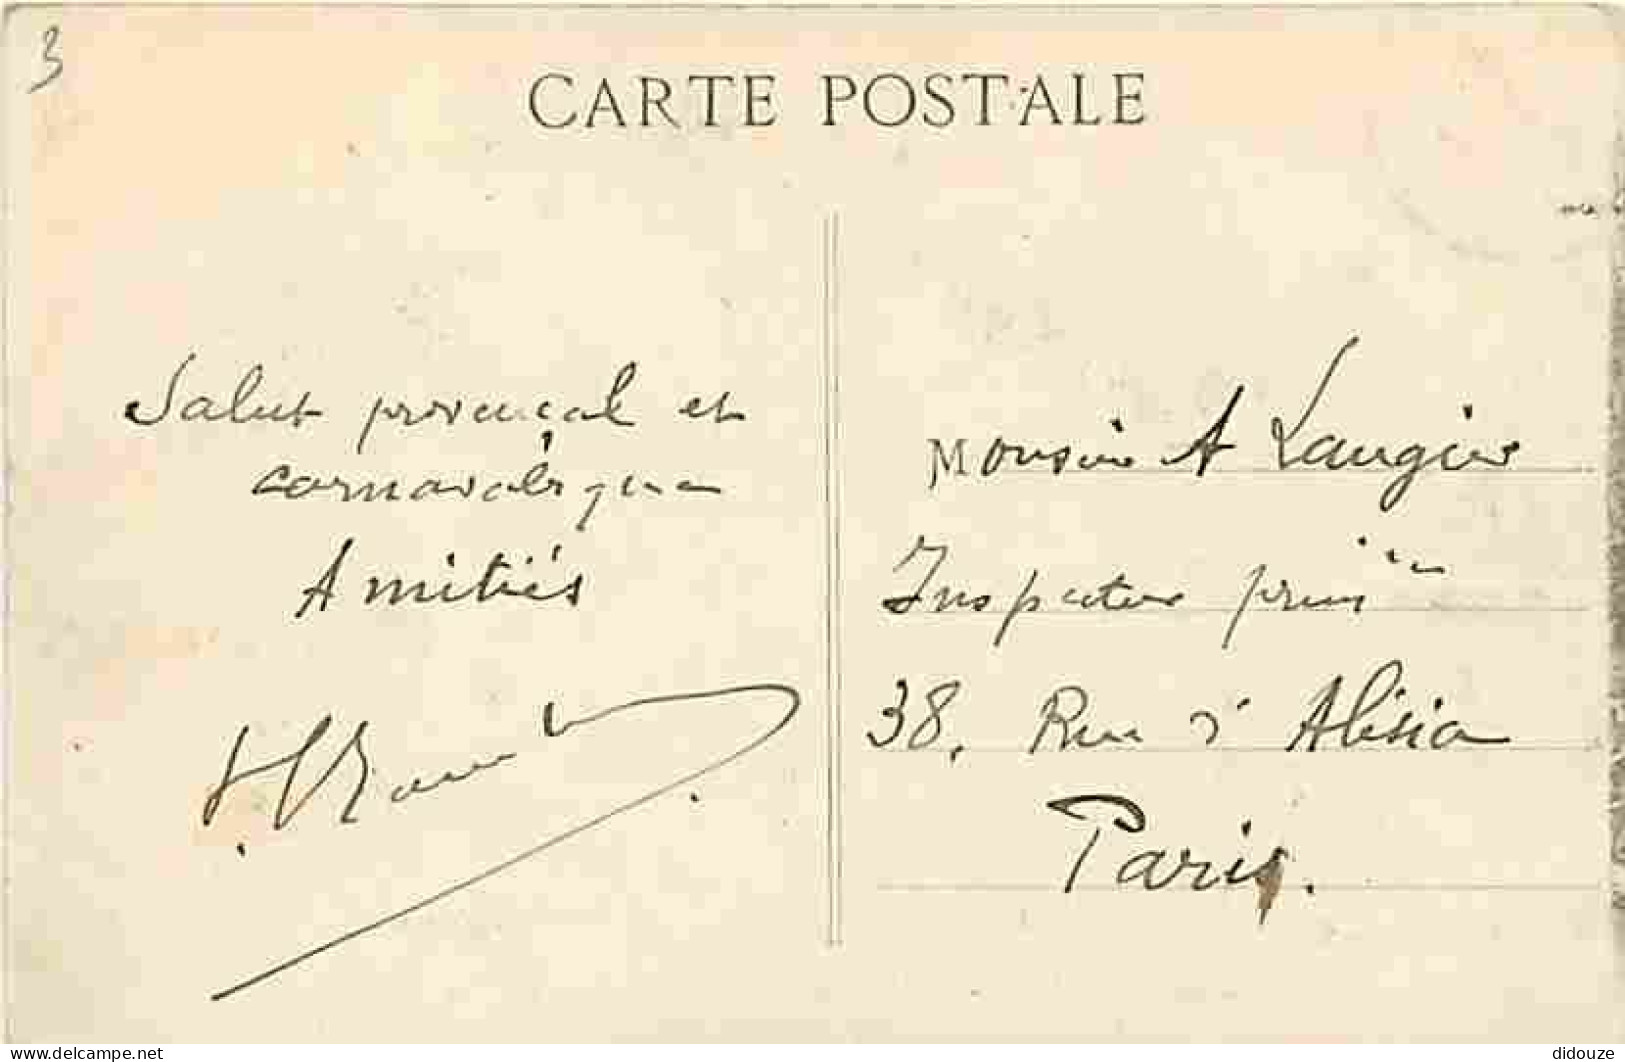 3
CARTE POSTALE
Salut provençal et
carnavalesque
Amitiés
Monsieur A Laugier
Inspecteur prim
38, Rue d'Alésia
Paris.
delcampe.net
didouze